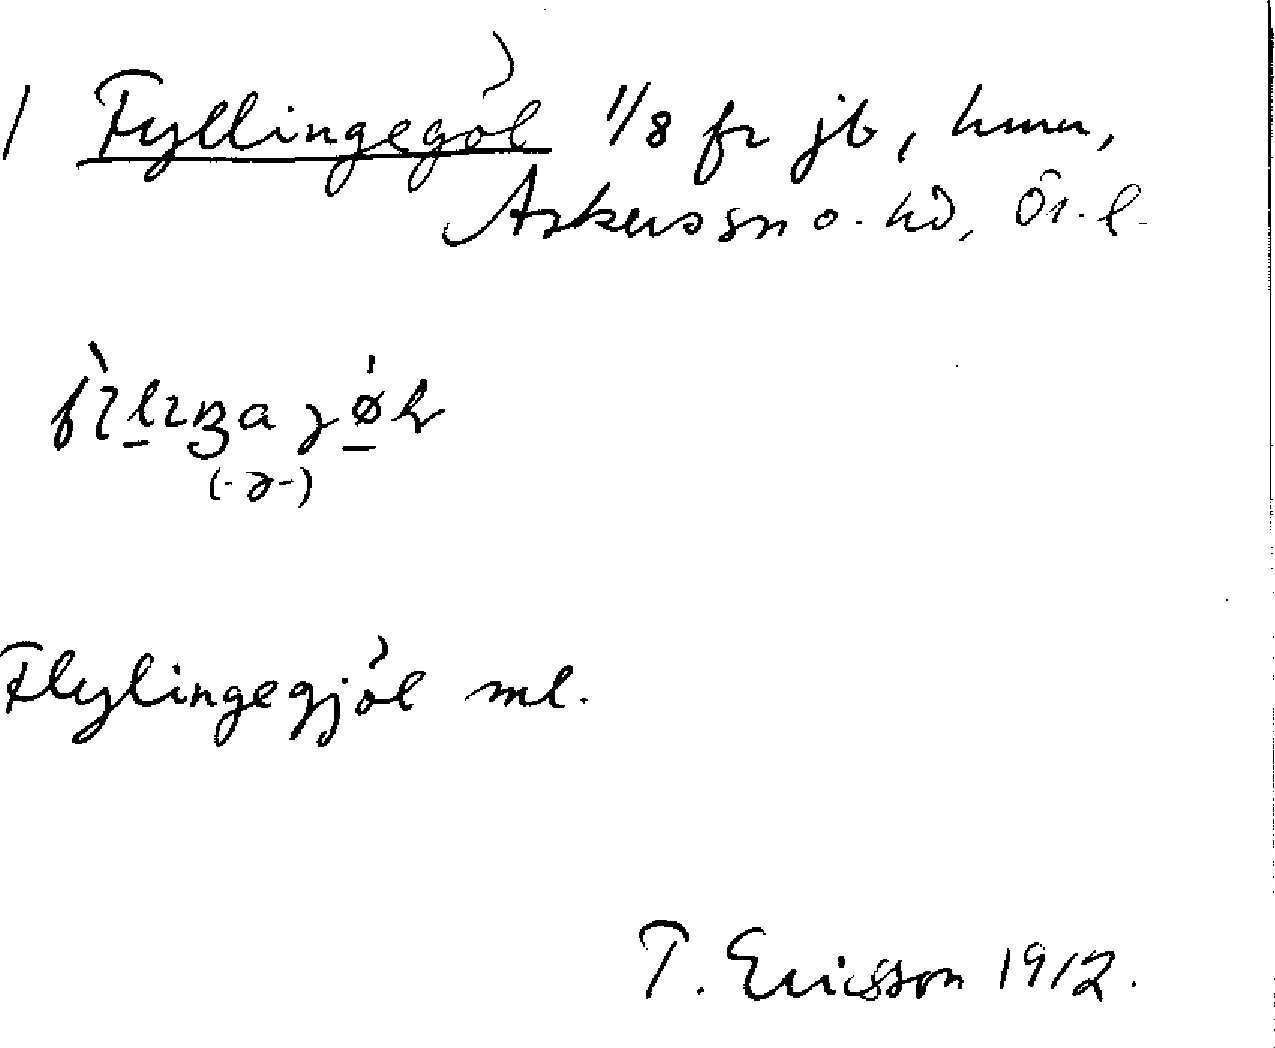 1 Fyllingegöl 1/8 fr jb, hmn,
Askers sn o. hd, Ör. l.
(-ə-)
Flylingegjöl ml.
T. Ericsson 1912.